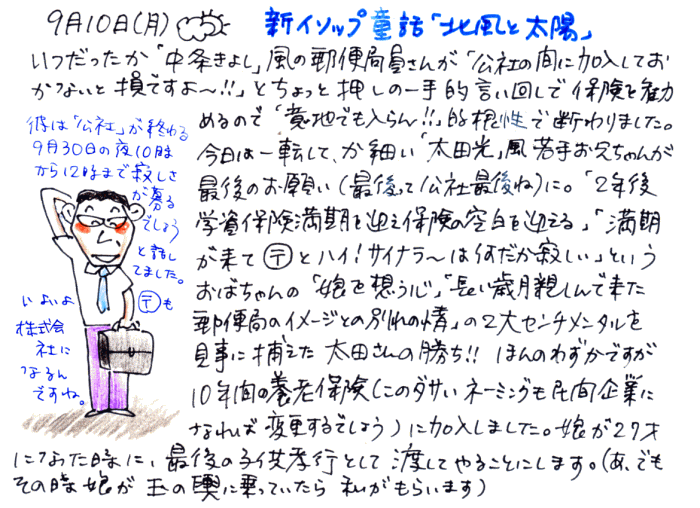 9月10日(月)
新イソップ童話「北風と太陽」
いつだったか「中条きよし」風の郵便局員さんが「公社の間に加入してお
かないと損ですよ〜!!」とちょっと押しの一手的言い回しで保険を勧
めるので「意地でも入らん!!」的根性で断わりました。
今日は一転して、か細い「太田光」風若手お兄ちゃんが
最後のお願い(最後って公社最後ね)に。「2年後
学資保険満期を迎え保険の空白を迎える」「満期
が来て〒とハイ!サイナラ〜は何だか寂しい」という
おばちゃんの「娘を想う心」「長い歳月親しんで来た
郵便局のイメージとの別れの情」の2大センチメンタルを
見事に捕えた太田さんの勝ち!! ほんのわずかですが
10年間の養老保険(このダサいネーミングも民間企業に
なれば変更するでしょう)に加入しました。娘が27才
になった時に、最後の子供孝行として渡してやることにします。(あ、でも
その時娘が玉の輿に乗っていたら私がもらいます)
彼は「公社」が終わる
9月30日の夜10時
から12時まで寂しさ
が募る
でしょう
と話し
てました。
〒も
いよいよ
株式会
社に
なるん
ですね。